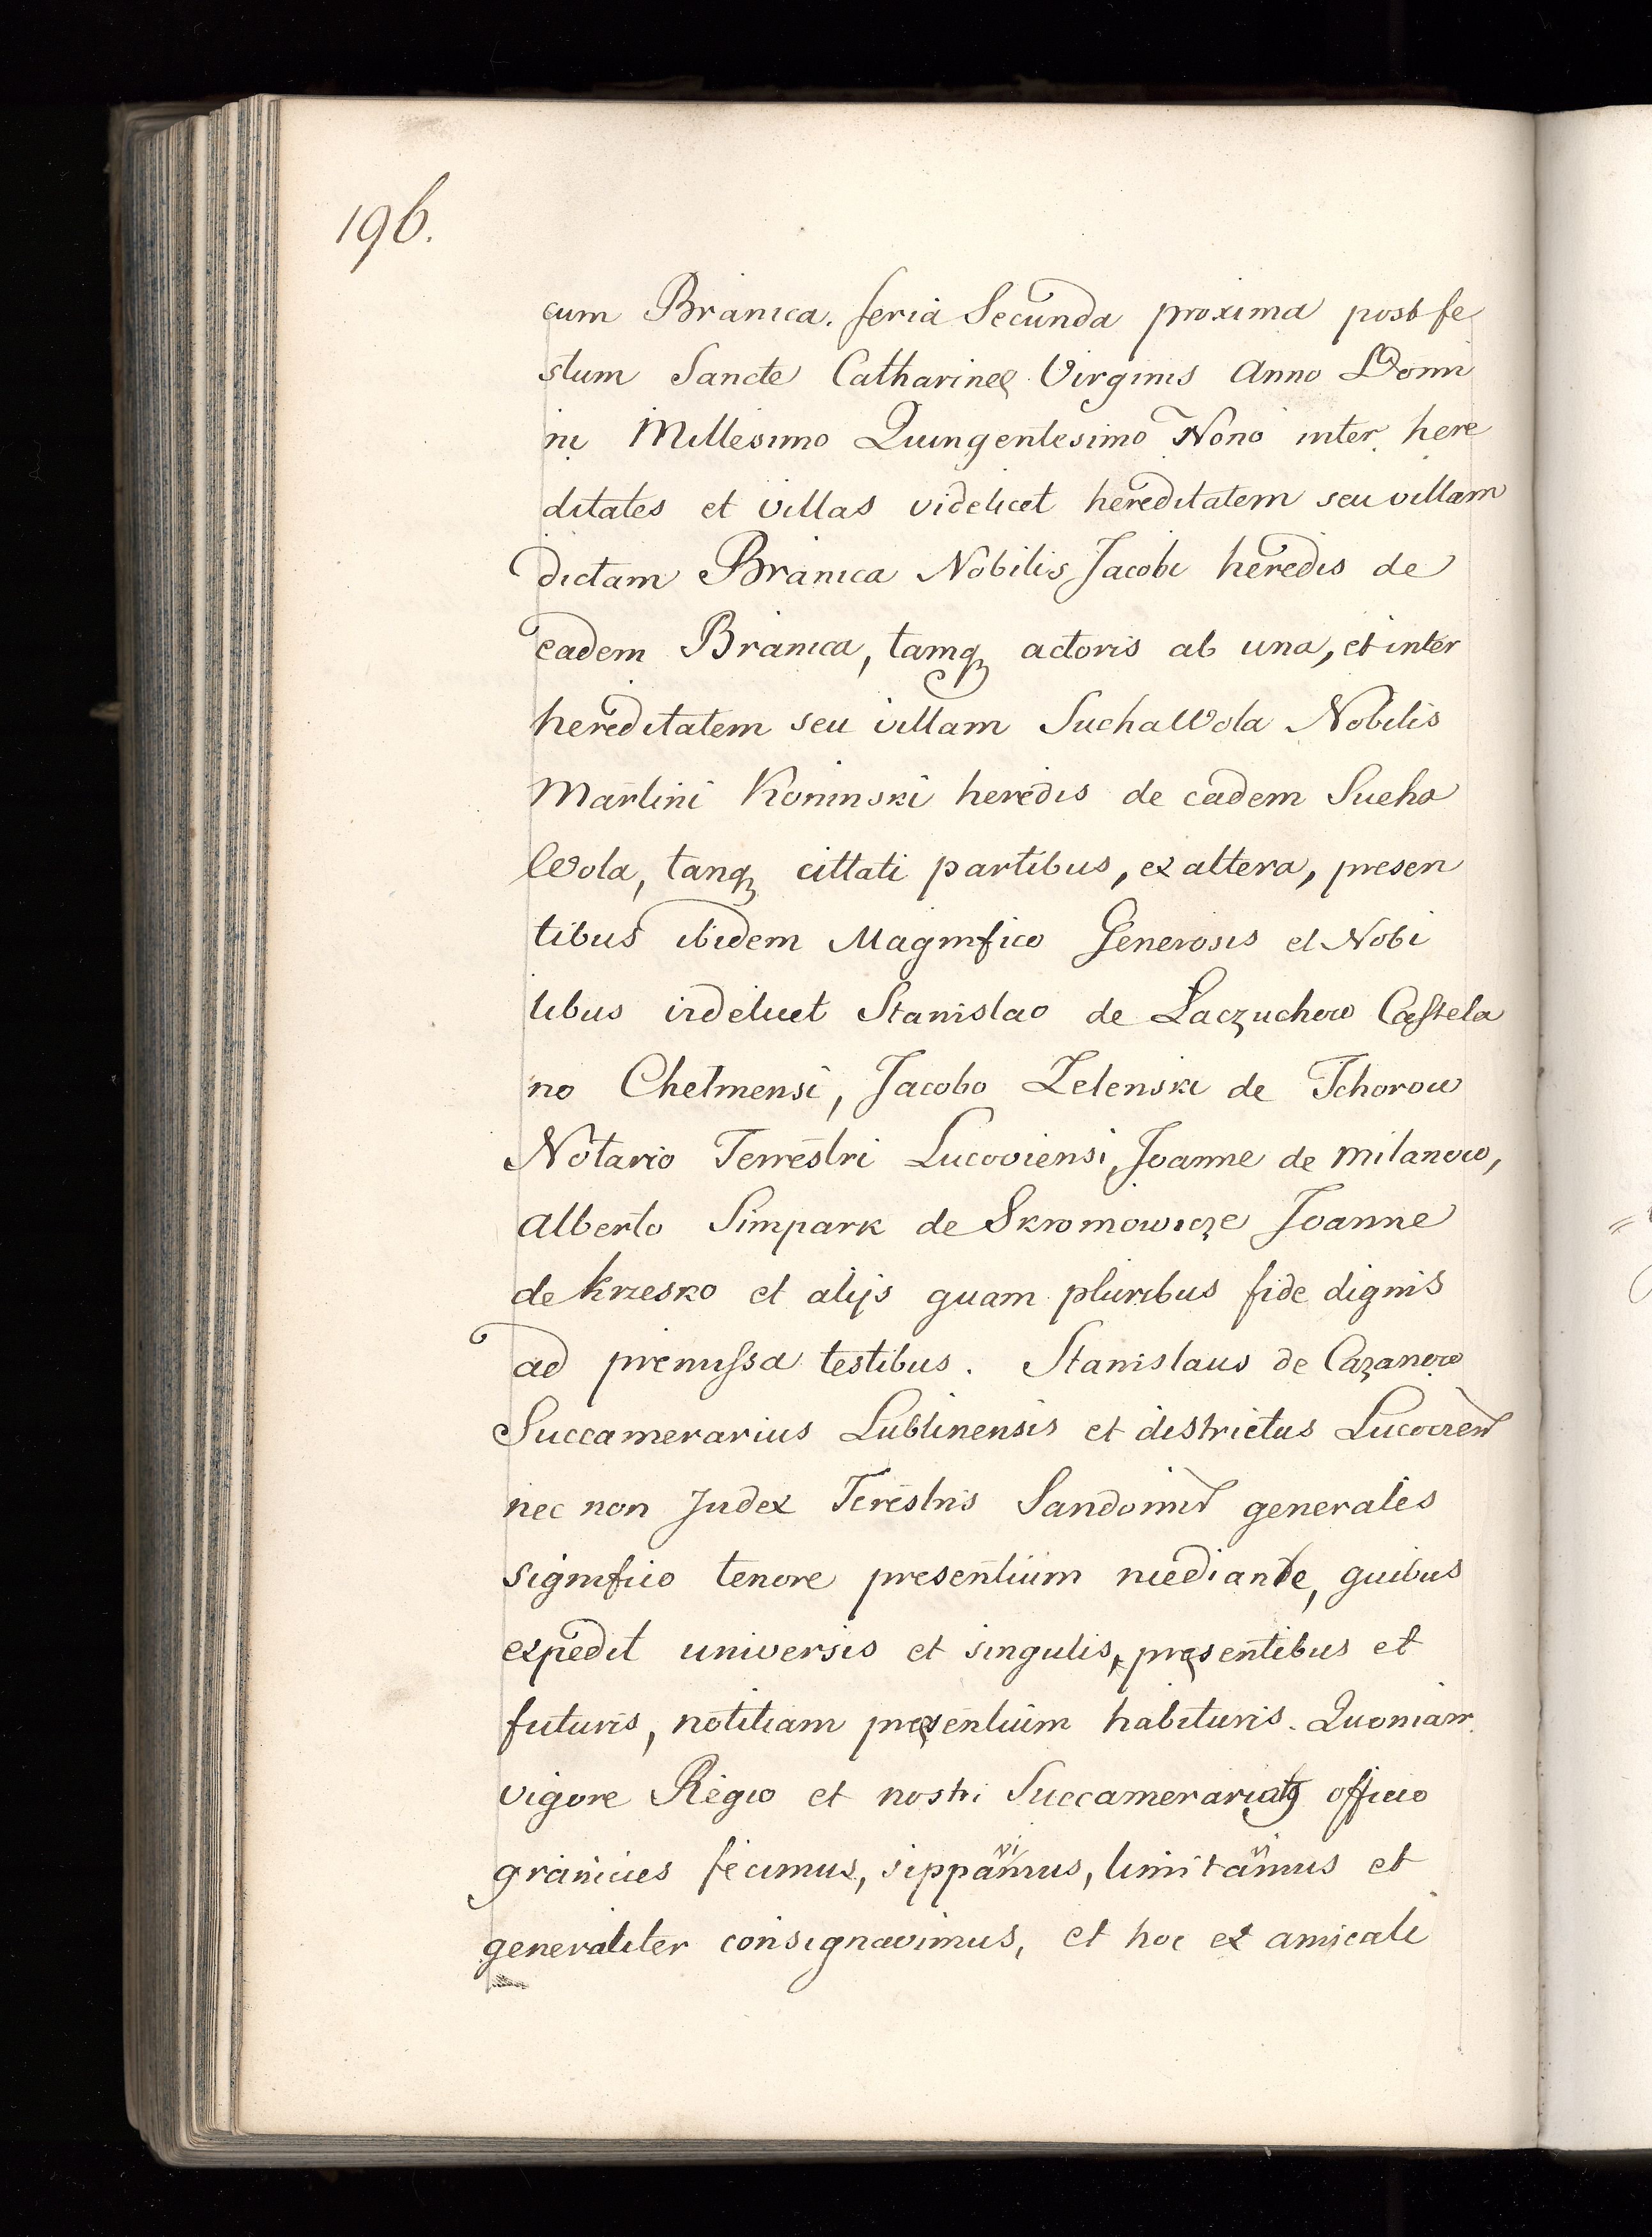 196.
cum Branica. feria Secunda proxima post fe
stum Sancte Catharinę Virginis Anno Domi
ni Millesimo Quingentesimo Nono inter here
ditates et villas videlicet hereditatem seu villam
dictam Branica Nobilis Jacobi heredis de
eadem Branica, tamq actoris ab una, et inter
hereditatem seu villam SuchaWola Nobilis
Martini Koninski heredis de eadem Sucha
Wola, tanq cittati partibus, ex altera, presen
tibus ibidem Magnifico Generosis et Nobi
libus videlicet Stanislao de Laczuchow Castela
no Chelmensi, Jacobo Zelenski de Tchorow
Notario Terrestri Lucoviensi, Joanne de Milanow,
Alberto Simpark de Skromowicze Joanne
de Krzesko et alijs quam pluribus fide dignis
ad premissa testibus. Stanislaus de Cazanow
Succamerarius Lublinensis et districtus Lucovien
nec non Judex Terestris Sandomir generales
significo tenore presentium mediante, quibus
expedit universis et singulis, pręsentibus et
futuris, notitiam pręsentium habituris. Quoniam
vigore Regio et nostri Succamerariatq officio
granicies fecimus, sippavimus, limitavimus et
generaliter consignavimus, et hoc ex amicali